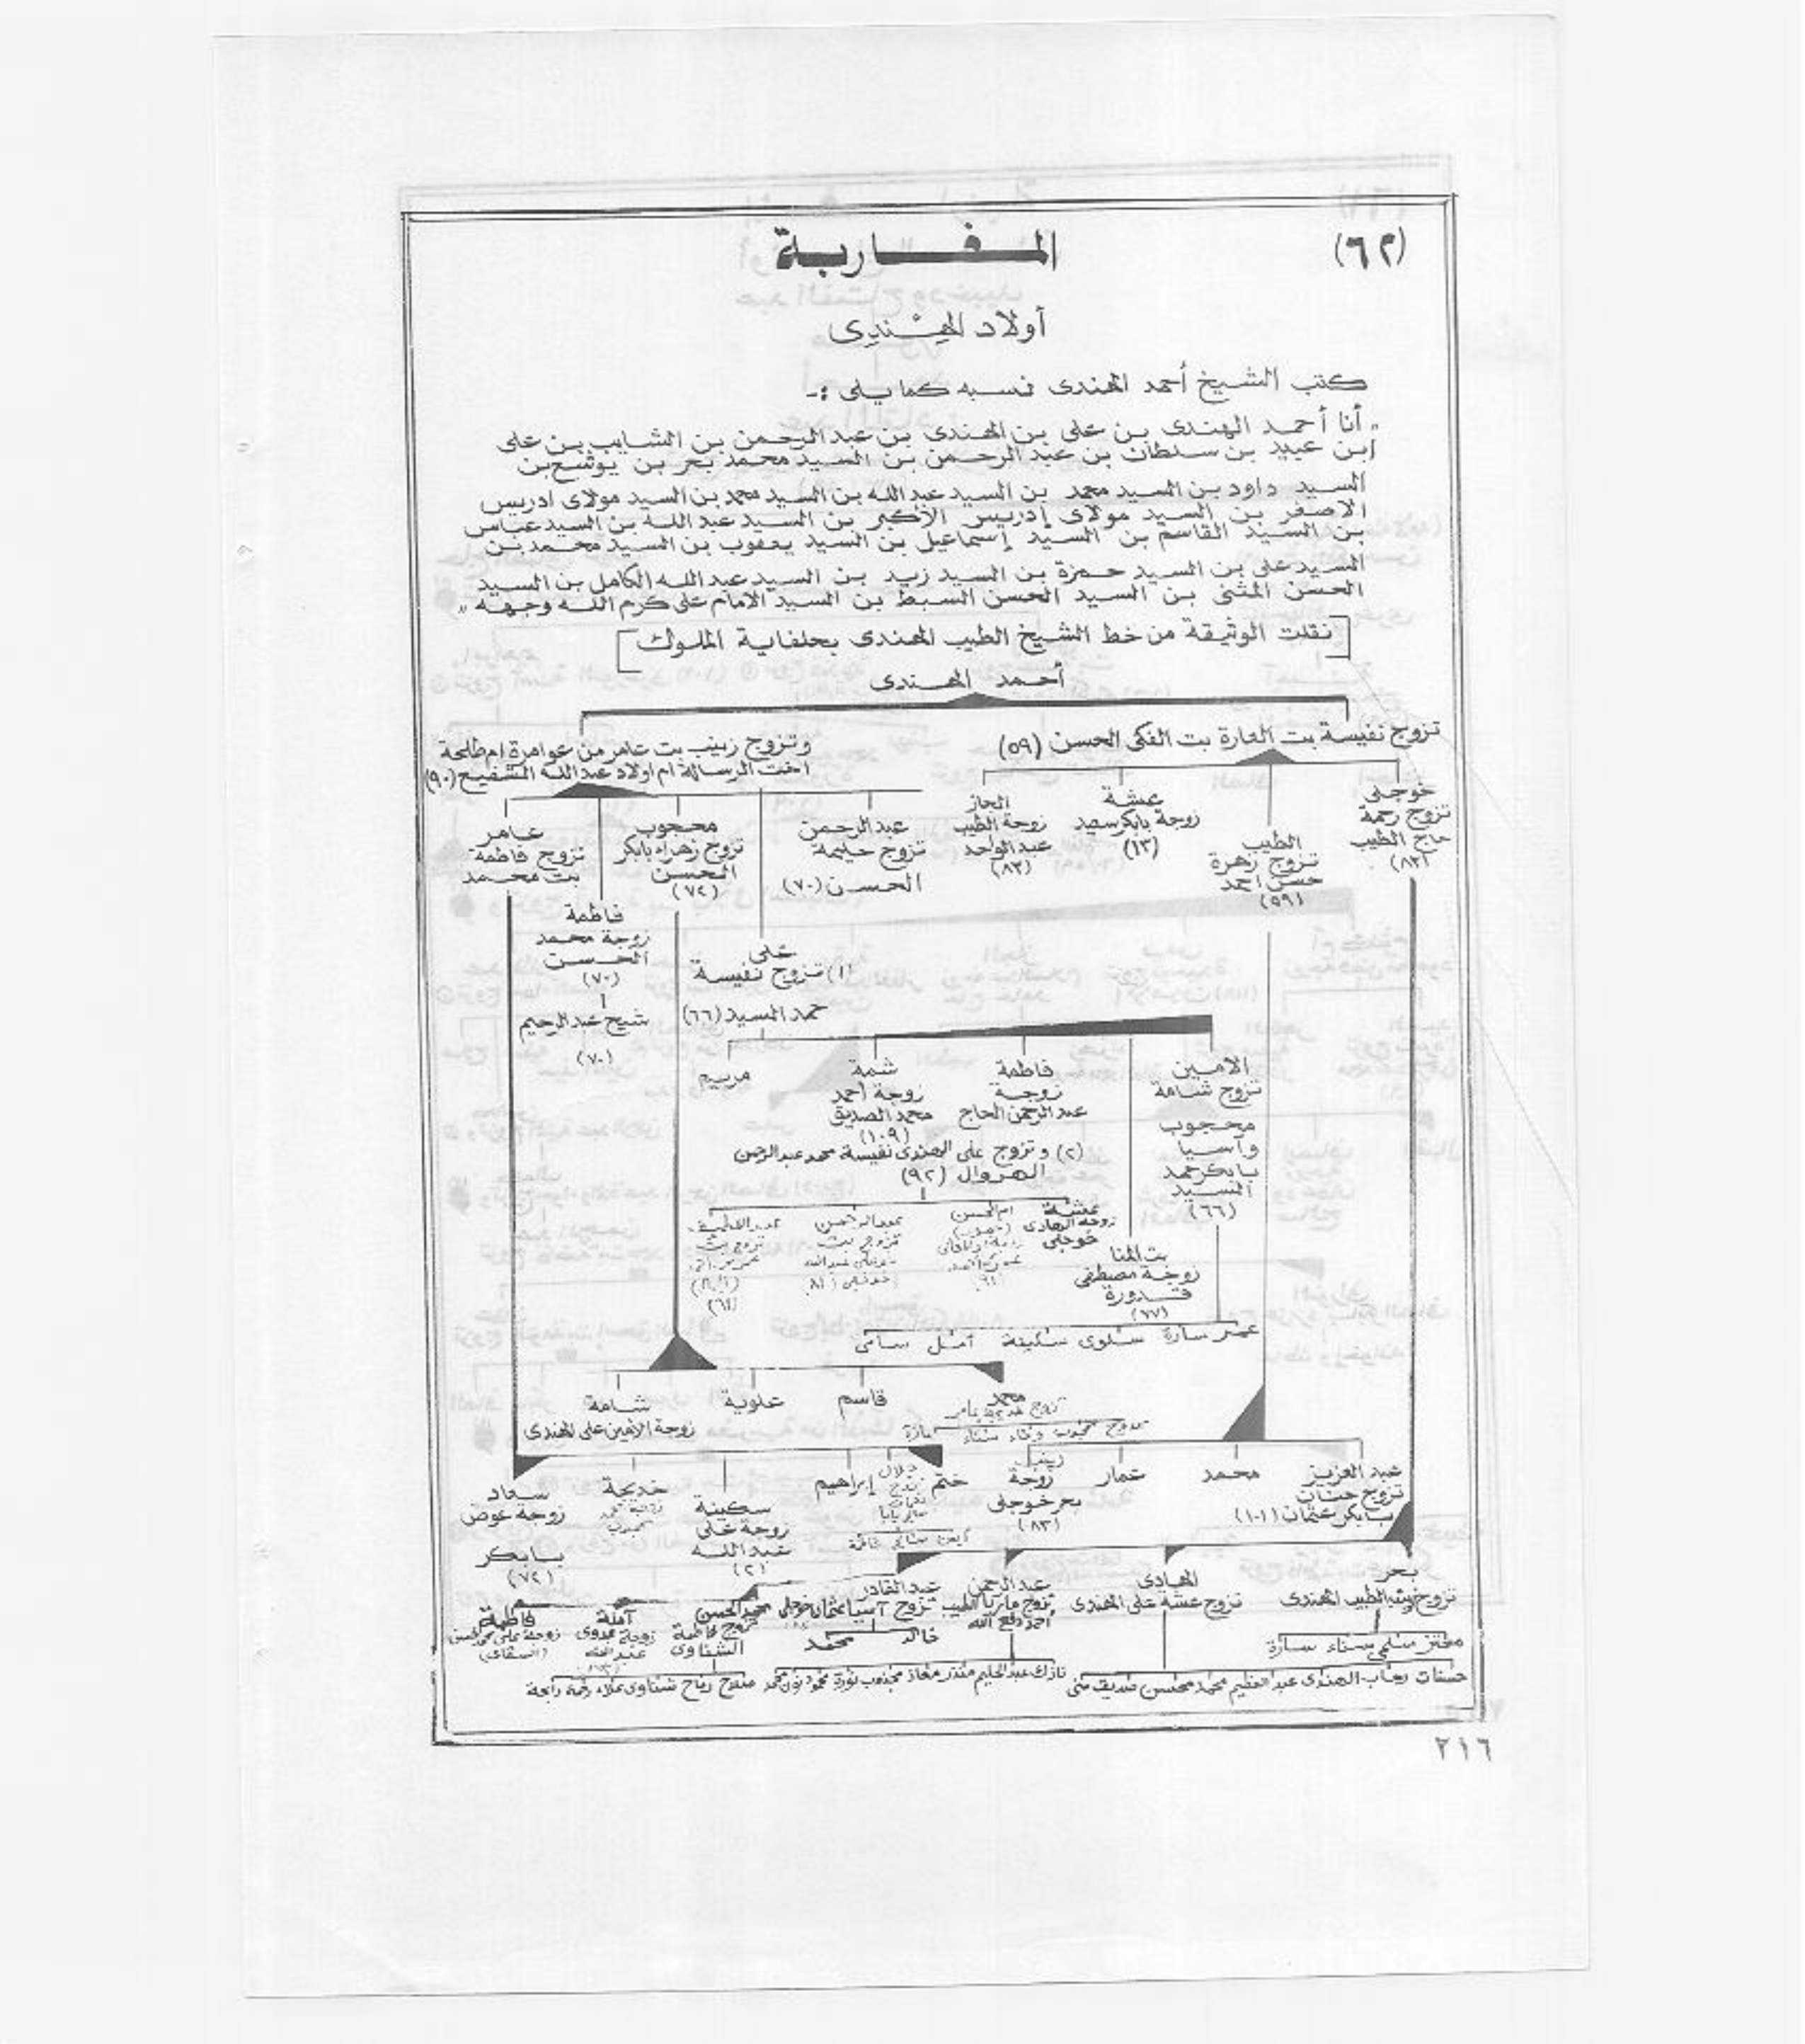 (٦٢)
المغاربة
أولاد الهِنْدِى
كتب الشيخ أحمد الهندى نسبه كما يلى :-
" أنا أحمد الهندى بن على بن الهندى بن عبد الرحمن بن الشايب بن على
ابن عبيد بن سلطان بن عبد الرحمن بن السيد محمد بحر بن يوشع بن
السيد داود بن السيد محمد بن السيد عبد الله بن السيد محمد بن السيد مولاى ادريس
الاصغر بن السيد مولاى إدريس الأكبر بن السيد عبد الله بن السيد عباس
بن السيد القاسم بن السيد إسماعيل بن السيد يعقوب بن السيد محمد بن
السيد على بن السيد حمزة بن السيد زيد بن السيد عبد الله الكامل بن السيد
الحسن المثنى بن السيد الحسن السبط بن السيد الامام على كرم الله وجهه "
[نقلت الوثيقة من خط الشيخ الطيب الهندى بحلفاية الملوك]
أحمد الهندى
تزوج نفيسة بت العازة بت الفكى الحسن (٥٩)
وتزوج زينب بت عامر من عوامرة ام طلحة
اخت الرسالة ام اولاد عبد الله الشفيع (٩٠)
خوجلى
تزوج رحمة
حاج الطيب
(٨٣)
الطيب
تزوج زهرة
حسن احمد
(٥٩)
عشة
زوجة بابكر سعيد
(١٣)
الجاز
زوجة الطيب
عبد الواحد
(٨٣)
عبد الرحمن
تزوج حليمة
الحسن (٧٠)
محجوب
تزوج زهراء بابكر
الحسن
(٧٤)
عامر
تزوج فاطمة
بت محمد
فاطمة
زوجة محمد
الحسن
(٧٠)
شيخ عبد الرحيم
(٧٠)
على
(١) تزوج نفيسة
حمد السيد (٦٦)
الامين
تزوج شامة
محجوب
وآسيا
بابكر حمد
السيد
(٦٦)
فاطمة
زوجة
عبد الرحمن الحاج
شمة
زوجة أحمد
محمد الصديق
(١٠٩)
مريم
(٢) وتزوج على الهندى نفيسة محمد عبد الرحمن
الهروال (٩٢)
عشة
زوجة الهادى
خوجلى
ام الحسن
عبد الرحمن
تزوج بت
عبد اللطيف
تزوج بت
بت المنا
زوجة مصطفى
قدورة
(٧٧)
عمر سارة سلوى سكينة أمل سامى
محمد
قاسم
علوية
شامة
زوجة الأمين على الهندى
عبد العزيز
تزوج حنان
بابكر عثمان (١٠١)
محمد
عمار
زينب
زوجة
بحر خوجلى
(٨٣)
ختم
جلال
إبراهيم
سكينة
زوجة على
عبد الله
(٢)
خديجة
سعاد
زوجة عوض
بابكر
(٧٤)
بحر
تزوج زينب الطيب الهندى
الهادى
تزوج عشة على الهندى
عبد الرحمن
تزوج ماريا الطيب
أحمد دفع الله
عبد القادر
تزوج آسيا عثمان خوجلى
محمد الحسن
تزوج فاطمة
الشناوى
آمنة
زوجة بدوى
عبد الله
فاطمة
زوجة على محمد حسن
(السقاى)
معتز سلمى سناء سارة
خالد محمد
حسنات رحاب الهندى عبد العظيم محمد محسن صديق منى
نازك عبد الحليم منذر معاذ مجذوب نورة
رباح شناوى علاء رابحة
٢١٦